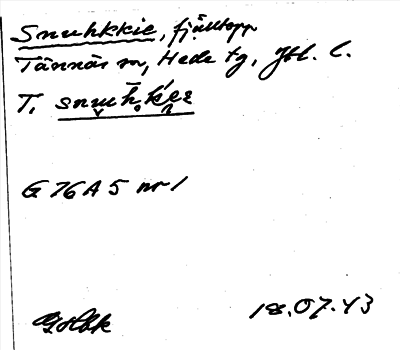 Snuhkkie, fjälltopp
Tännäs sn, Hede tg, Jtl. l.
T.
G 76 A 5 nr 1
18.07.43